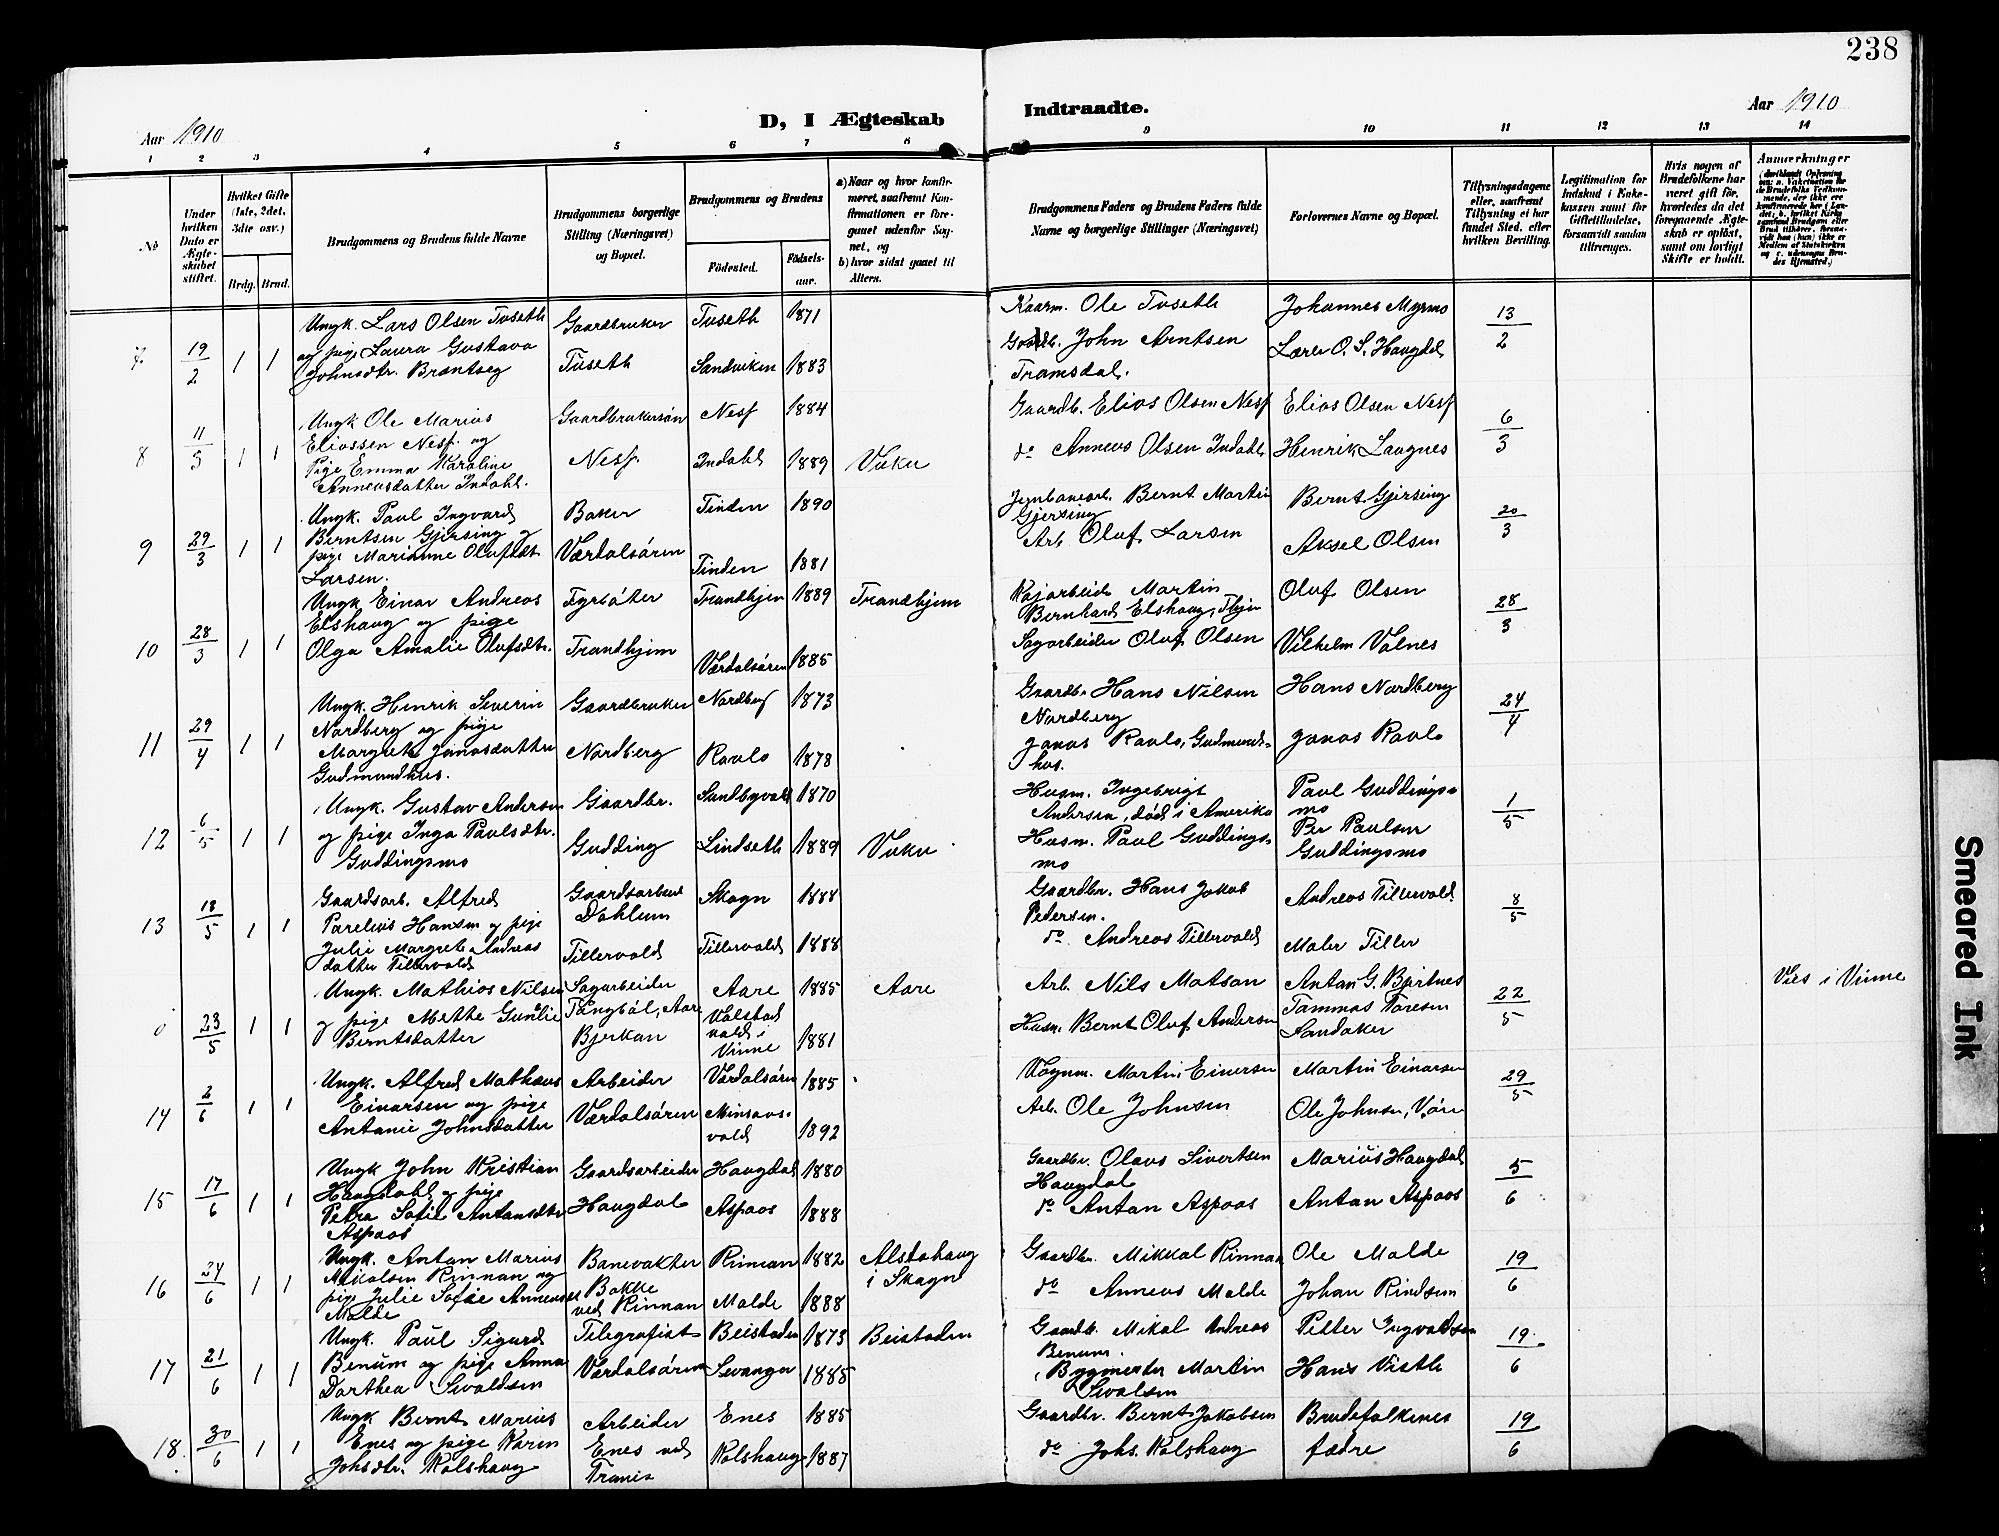 238
D, I Ægteskab Indtraadte.
Aar 1910
Aar 1910
1 2 3 4 5 6 7 8 9 10 11 12 13 14
No
Under hvilken Dato er Ægteskabet stiftet.
Hvilket Gifte (1ste, 2det, 3die osv.)
Brdg. Brud.
Brudgommens og Brudens fulde Navne
Brudgommens borgerlige Stilling (Næringsvei) og Bopæl.
Brudgommens og Brudens
Fødested. Fødselsaar.
a) Naar og hvor konfirmeret, saafremt Konfirmationen er foregaaet udenfor Sognet, og
b) hvor sidst gaaet til Alters.
Brudgommens Faders og Brudens Faders fulde Navne og borgerlige Stillinger (Næringsvei)
Forlovernes Navne og Bopæl.
Tillysningsdagene eller, saafremt Tillysning ei har fundet Sted, efter hvilken Bevilling.
Legitimation for Indskud i Enkekassen samt for Giftetilladelse, forsaavidt saadan tiltrænges.
Hvis nogen af Brudefolkene har været gift før, hvorledes da det foregaaende Ægteskab er opløst, samt om lovligt Skifte er holdt.
Anmærkninger
7 19/2 1 1
Ungk. Lars Olsen Tuseth
og pige Laura Gustava
Johnsdtr. Bræntseg
Gaardbruker
Tuseth
Tuseth 1871
Sandviken 1883
Kaarm. Ole Tuseth
Gaardb. John Arntsen
Tramsdal.
Johannes Myrmo
Lærer O. S. Haugdal
13/2
8 11/3 1 1
Ungk Ole Marius
Eliassen Nesf. og
Pige Emma Karoline
Anneusdatter Indahl.
Gaardbrukersøn
Nesf.
Nesf 1884
Indahl 1889
Vuku
Gaardb. Elias Olsen Nesf
do Anneus Olsen Indahl
Elias Olsen Nesf
Henrik Laugnes
6/3
9 29/3 1 1
Ungk. Paul Ingvard
Berntsen Gjersing og
pige Marianne Olufsdt.
Larsen.
Baker
Værdalsøren
Tinden 1890
Tinden 1881
Jernbanearb. Bernt Martin
Gjersing
Arb. Oluf Larsen
Bernt Gjersing
Aksel Olsen
20/3
10 28/3 1 1
Ungk Einar Andreas
Elshaug og pige
Olga Amalie Olufsdtr.
Fyrbøter
Trondhjem
Trondhjem 1889
Værdalsøren 1885
Trondhjem
Kajarbeider Martin
Bernhard Elshaug, Thjm
Sagarbeider Oluf Olsen
Oluf Olsen
Vilhelm Valnes
28/3
11 29/4 1 1
Ungk. Henrik Severin
Nordberg og pige
Margrete Janasdatter
Gudmundhus.
Gaardbruker
Nordberg
Nordberg 1873
Ravlo 1878
Gaardbr. Hans Nilsen
Nordberg
Janas Ravlo, Gudmundhus.
Hans Nordberg
Janas Ravlo
24/4
12 6/5 1 1
Ungk. Gustav Andersen
og pige Inga Paulsdtr.
Guddingsmo
Gaardbr.
Gudding
Sundbyvald 1870
Lindseth 1889
Vuku
Husm. Ingebrigt
Andersen, død i Amerika
Husm. Paul Guddingsmo
Paul Guddingsmo
Per Paulsen
Guddingsmo
1/5
13 18/5 1 1
Gaardsarb. Alfred
Parelius Hansen og pige
Julie Margrete Andreas
datter Tillervald
Gaardsarbeid
Dahlum
Tillervald
Skogn 1888
Tillervald 1888
Gaardbr. Hans Jakob
Pedersen.
do. Andreas Tillervald
Andreas Tillervald
Maler Tiller
8/5
23/5 1 1
Ungk. Mathias Nilsen
og pige Methe Gunlie
Berntsdatter
Sagarbeider
Tangbøl, Aare
Bjerkan
Aare 1885
Valstad
vald i
Vinne 1881
Aare
Arb. Nils Matsan
Husm. Bernt Oluf Andersen
Antan G. Bjartnes
Tammas Taresen
Sandaker
22/5
Vies i Vinne
14 2/6 1 1
Ungk. Alfred Mathæus
Einarsen og pige
Antanie Johnsdatter
Arbeider
Værdalsøren
Værdalsøren 1885
Minsaasvald 1892
Vognm. Martin Einersen
Arb. Ole Johnsen
Martin Einarsen
Ole Johnsen, V.øre
29/5
15 17/6 1 1
Ungk John Kristian
Haugdahl og pige
Petra Sofie Antansdtr
Aspaas
Gaardsarbeider
Haugdal
Haugdal 1880
Aspaas 1888
Gaardbr. Olaus Sivertsen
Haugdal
do Antan Aspaas
Marius Haugdal
Antan Aspaas
5/6
16 24/6 1 1
Ungk. Antan Marius
Mikalsen Rinnan og
pige Julie Sofie Anneusdt
Molde
Banevakter
Bakke
ved Rinnan
Rinnan 1882
Molde 1888
Alstahaug
i Skogn
Gaardbr. Mikkal Rinnan
do Anneus Molde
Ole Molde
Johan Rindsem
19/6
17 21/6 1 1
Ungk. Paul Sigurd
Benum og pige Anna
Darthea Sivaldsen
Telegrafist
Værdalsøren
Beistaden 1873
Levanger 1885
Beistaden
Gaardb. Mikal Andreas
Benum.
Bygmester Martin
Sivalsen
Petter Ingvaldsen
Hans Vistle
19/6
18 30/6 1 1
Ungk. Bernt Marius
Enes og pige Karen
Johsdtr. Kolshaug
Arbeider
Enes ved
Tranes
Enes 1885
Kolshaug 1887
Gaardbr. Bernt Jakobsen
do Johs. Kolshaug
Brudefolkenes
fædre
19/6
Smeared Ink